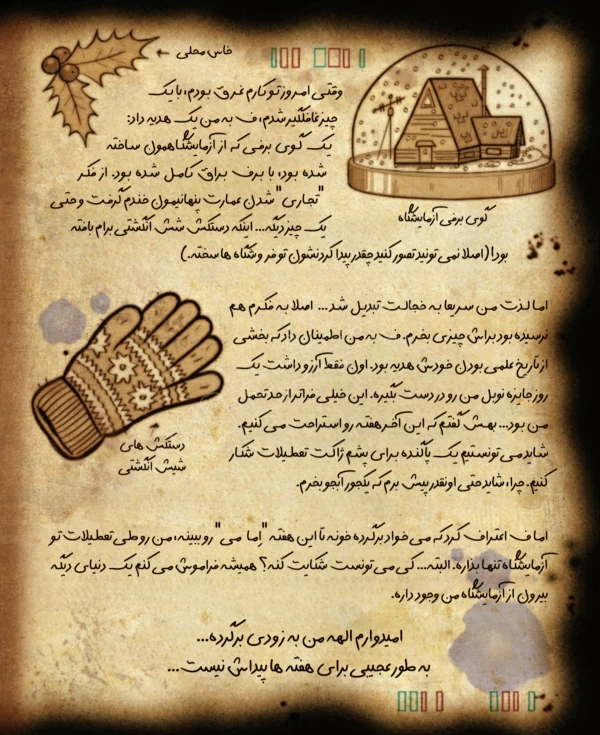 خاس محلی
وقتی امروز تو کارم غرق بودم، با یک
چیز غافلگیر شدم، ف به من یک هدیه داد:
یک گوی برفی که از آزمایشگاهمون ساخته
شده بود، با برف براق کامل شده بود. از فکر
"تجاری" شدن عمارت پنهانیمون خندم گرفت و حتی
یک چیز دیگه... اینکه دستکش شش انگشتی برام بافته
بود! (اصلا نمی تونید تصور کنید چقدر پیدا کردنشون تو فروشگاه ها سخته.)
گوی برفی آزمایشگاه
اما لذت من سریعا به خجالت تبدیل شد... اصلا به فکرم هم
نرسیده بود براش چیزی بخرم. ف به من اطمینان داد که بخشی
از تاریخ علمی بودن خودش هدیه بود. اون فقط آرزو داشت یک
روز جایزه نوبل من رو در دست بگیره. این خیلی فراتر از حد تحمل
من بود... بهش گفتم که این آخر هفته رو استراحت می کنیم.
شاید می تونستیم یک پاگنده برای پشم ژاکت تعطیلات شکار
کنیم. چرا، شاید حتی اونقدر پیش برم که یکجور آبجو بخرم.
دستکش های
شیش انگشتی
اما ف اعتراف کرد که می خواد برگرده خونه تا این هفته "اِما می" رو ببینه، من رو طی تعطیلات تو
آزمایشگاه تنها بذاره. البته... کی می تونست شکایت کنه؟ همیشه فراموش می کنم یک دنیای دیگه
بیرون از آزمایشگاه من وجود داره.
امیدوارم الهه من به زودی برگرده...
به طور عجیبی برای هفته ها پیداش نیست...